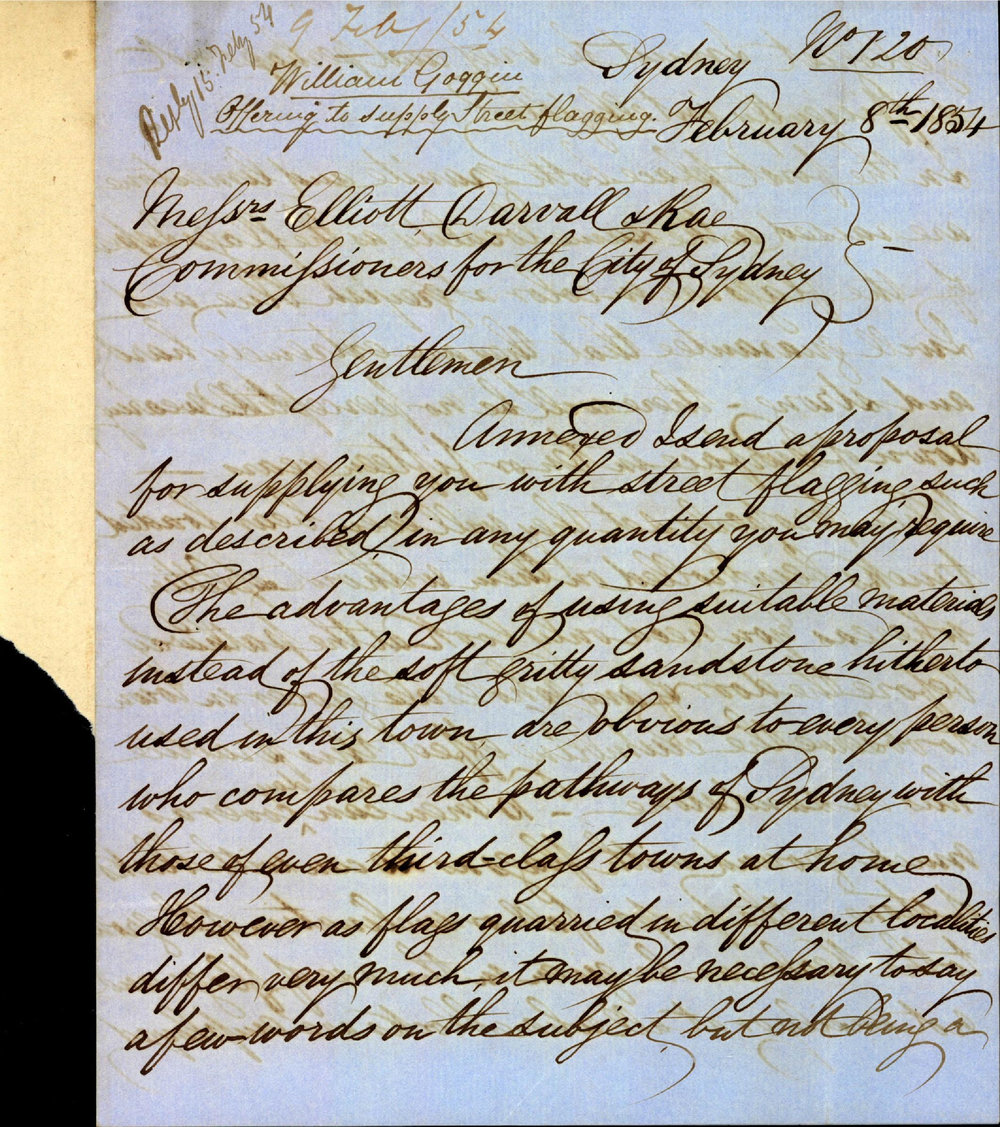 9 Feby/54
Reply 15 Feby 54
William Goggin
Offering to supply Street flagging.
No 120
Sydney
February 8th 1854
Messrs Elliott Darvall & Rae
Commissioners for the City of Sydney
Gentlemen
Annexed I send a proposal
for supplying you with street flagging such
as described, in any quantity you may require
The advantages of using suitable materials
instead of the soft gritty sandstone hitherto
used in this town are obvious to every person
who compares the pathways of Sydney with
those of even third-class towns at home
However as flags quarried in different localities
differ very much, it may be necessary to say
a few words on the subject, but not being a